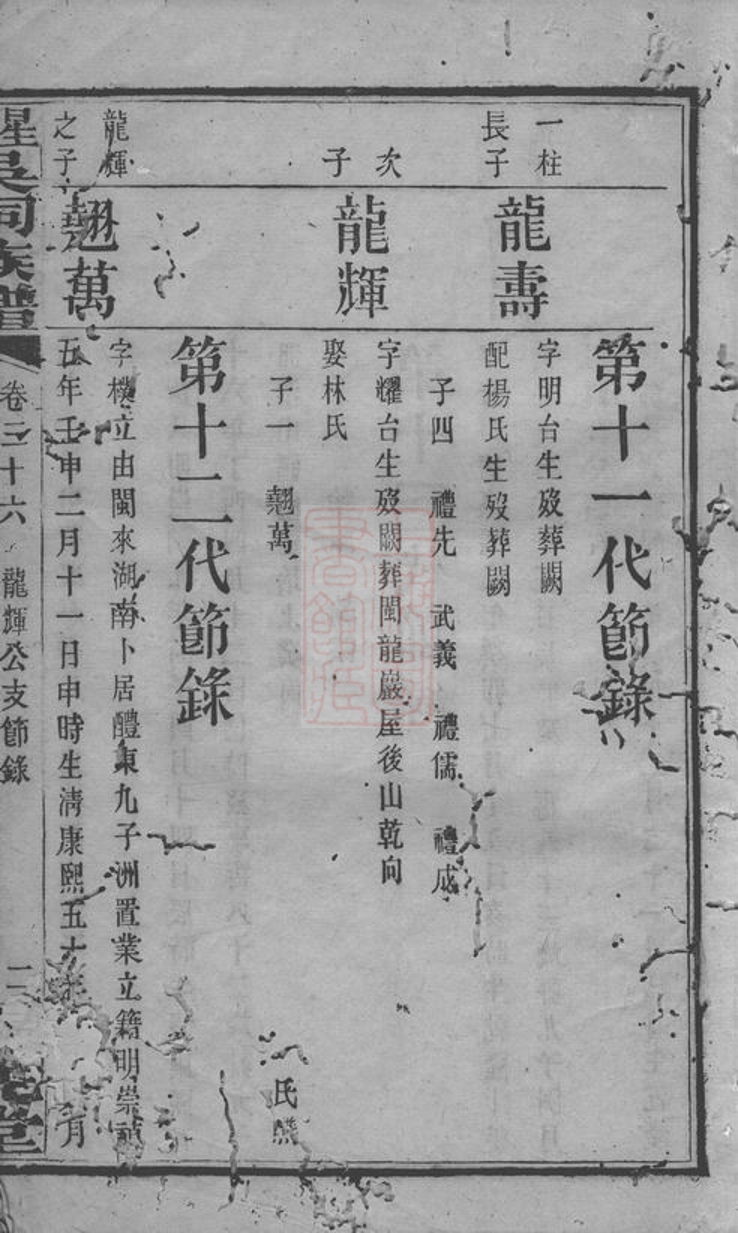 第十一代節錄
一柱
長子
龍壽
字明台生歿葬闕
配楊氏生歿葬闕
子四 禮先 武義 禮儒 禮成
次
子
龍輝
字耀台生歿闕葬閩龍巖屋後山乾向
娶林氏
子一 翹萬
氏
第十二代節錄
龍輝
之子
翹萬
字樸立由閩來湖南卜居醴東九子洲置業立籍明崇禎
五年壬申二月十一日申時生清康熙五十 月
吳祠族譜
卷三十六 龍輝公支節錄 二
堂